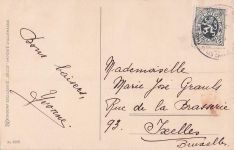 Bons baisers,
Yvonne.
Mademoiselle
Marie Jose Grauls
Rue de la Brasserie
93. Ixelles
Bruxelles.